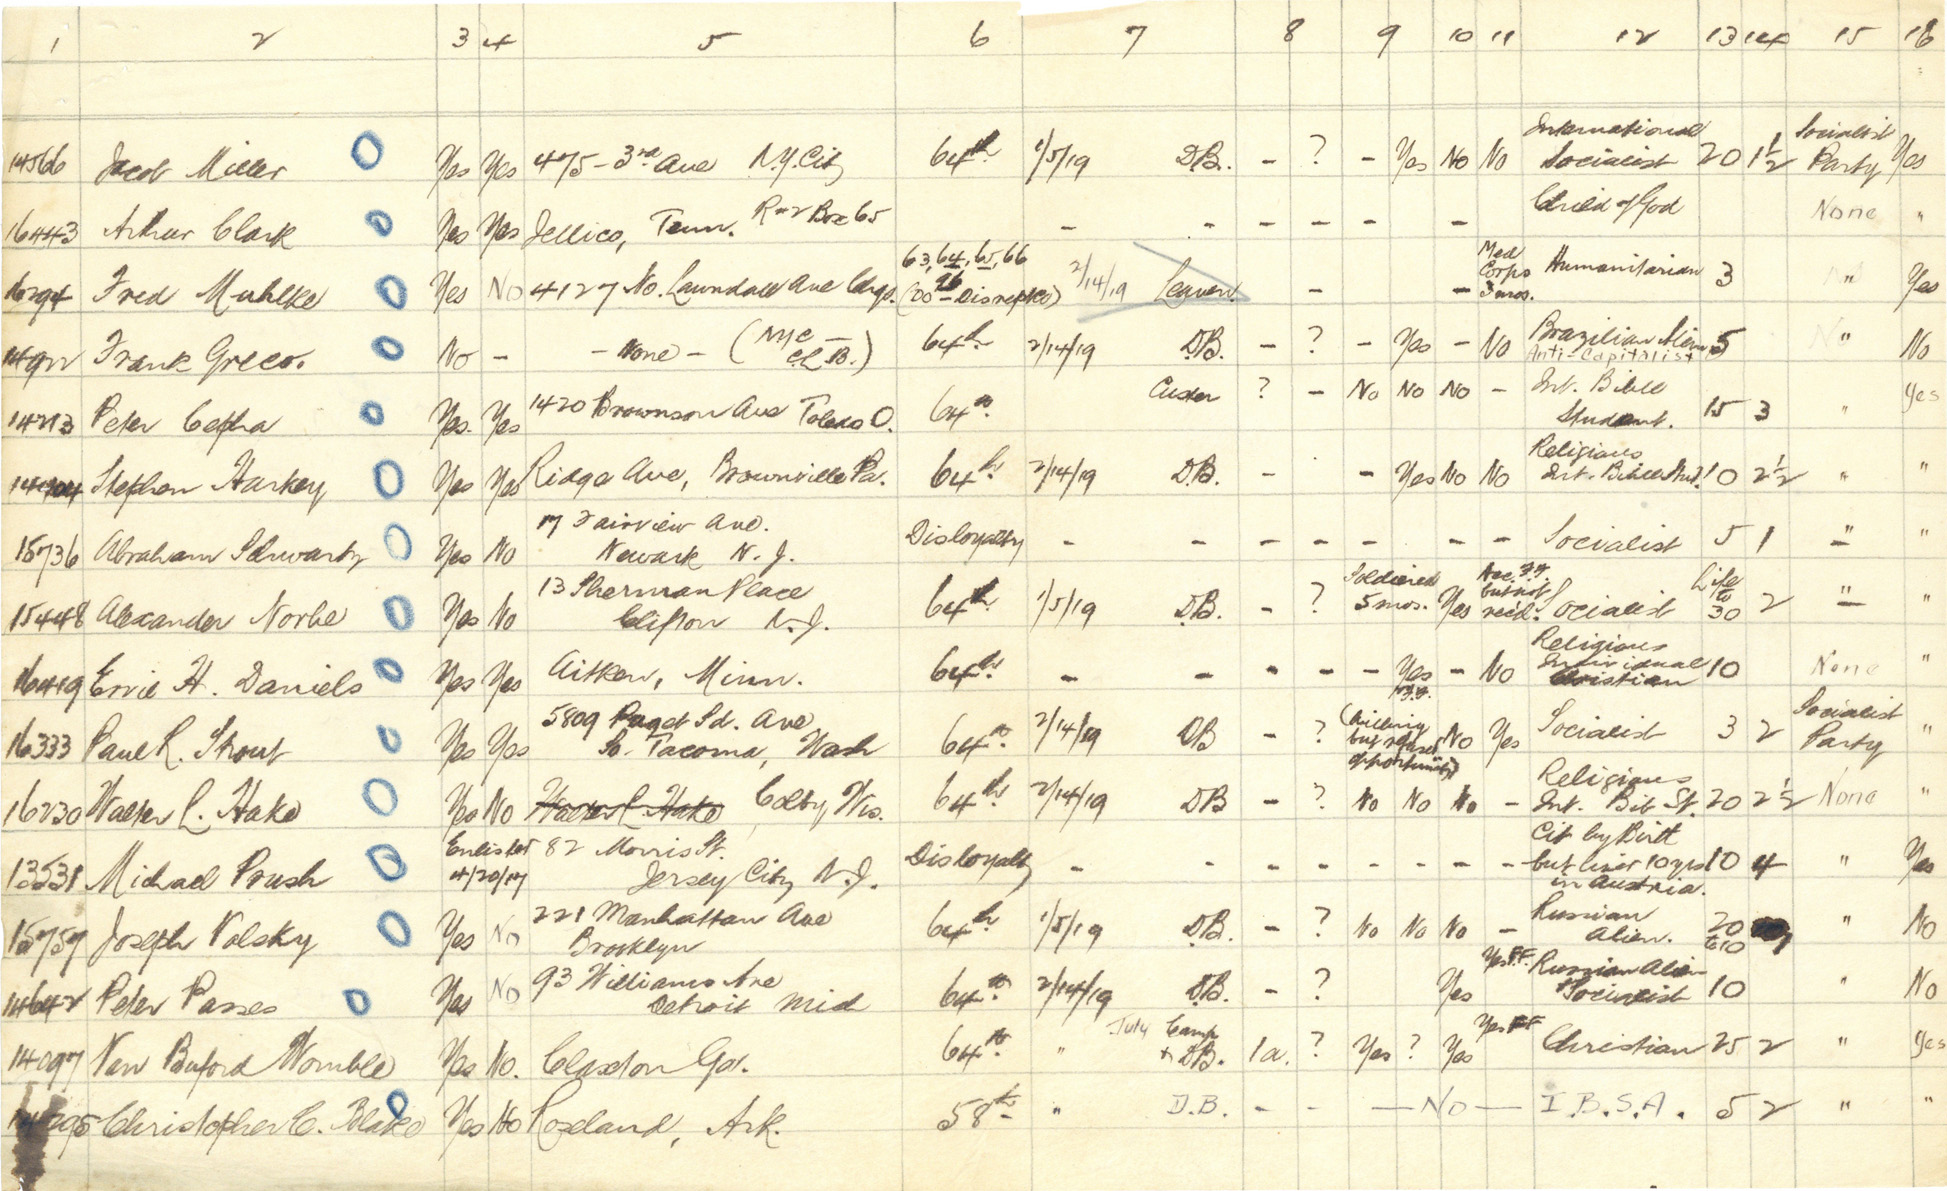 1 2 3 4 5 6 7 8 9 10 11 12 13 14 15 16
14566 Jacob Miller Yes Yes 475 - 3rd Ave N.Y. City 64th 1/5/19 D.B. - ? - Yes No No International Socialist 20 1½ Socialist Party Yes
16443 Arthur Clark Yes Yes Jellico, Tenn. R#2 Box 65 - - - - - - Child of God None "
16294 Fred Muhlke Yes No 4127 No. Lawndale Ave Chgo. 63, 64, 65, 66 96 (DO - Disrepte) 2/14/19 Leaven. - - Med Corps 3 mos. Humanitarian 3 " Yes
Frank Greco. No - - None - (NYC - C.L.B.) 64th 2/14/19 D.B. - ? - Yes - No Brazilian Alien Anti-Capitalist 5 " No
14213 Peter Cepha Yes. Yes 1420 Brownson Ave Toledo O. 64th Custer ? - No No No - Int. Bible Student. 15 3 " Yes
Stephen Harkey Yes Yes Ridge Ave, Brownville Pa. 64th 2/14/19 D.B. - - Yes No No Religious Int. Bible Stud. 10 2½ " "
15736 Abraham Schwartz Yes No 17 Fairview Ave. Newark N.J. Disloyalty - - - - - - - Socialist 5 1 " "
15448 Alexander Norbe Yes No 13 Sherman Place Clifton N.J. 64th 1/5/19 D.B. - ? Soldiered 5 mos. Yes but not rec'd. Socialist Life to 30 2 " "
16419 Ervie H. Daniels Yes Yes Aitken, Minn. 64th - - - - - Yes - No Religious Individual Christian 10 None "
16333 Paul R. Strout Yes Yes 5809 Puget Sd. Ave So. Tacoma, Wash 64th 2/14/19 DB - ? (willing but refused opportunity) No Yes Socialist 3 2 Socialist Party "
16230 Walter L. Hake Yes No Walter L. Hake Colby, Wis. 64th 2/14/19 DB - ? No No No - Religious Int. Bib St. 20 2½ None "
13531 Michael Prush Enlisted 4/20/17 82 Morris St. Jersey City, N.J. Disloyalty - - - - - - - - Cit by Birth but liver 10 yrs in Austria. 10 4 " Yes
15757 Joseph Volsky Yes No 221 Manhattan Ave Brooklyn 64th 1/5/19 D.B. - ? No No No - Russian Alien. 20 to 10 " No
14642 Peter Passes Yes No 93 Williams Ave Detroit Mich 64th 2/14/19 D.B. - ? Yes Yes F.F. Russian Alien Socialist 10 " No
14097 Van Buford Womble Yes No. Claxton Ga. 64th " July Camp + D.B. 1a. ? Yes ? Yes Yes FF Christian 25 2 " Yes
Christopher C. Blake Yes No Roseland, Ark. 58th " D.B. - - - No - I.B.S.A. 5 2 " "